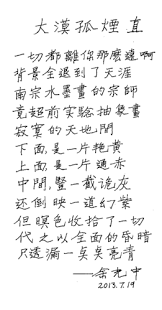 大漠孤煙直
一切都離你那麼遠啊
背景全退到了天涯
南宗水墨畫的宗師
竟超前實驗抽象畫
寂寞的天地間
下面,是一片艳黄
上面,是一片通赤
中間,豎一截诡灰
还倒映一道幻裳
但暝色收拾了一切
代之以全面的昏暗
只透漏一吴吴亮青
——余光中
2013.7.19